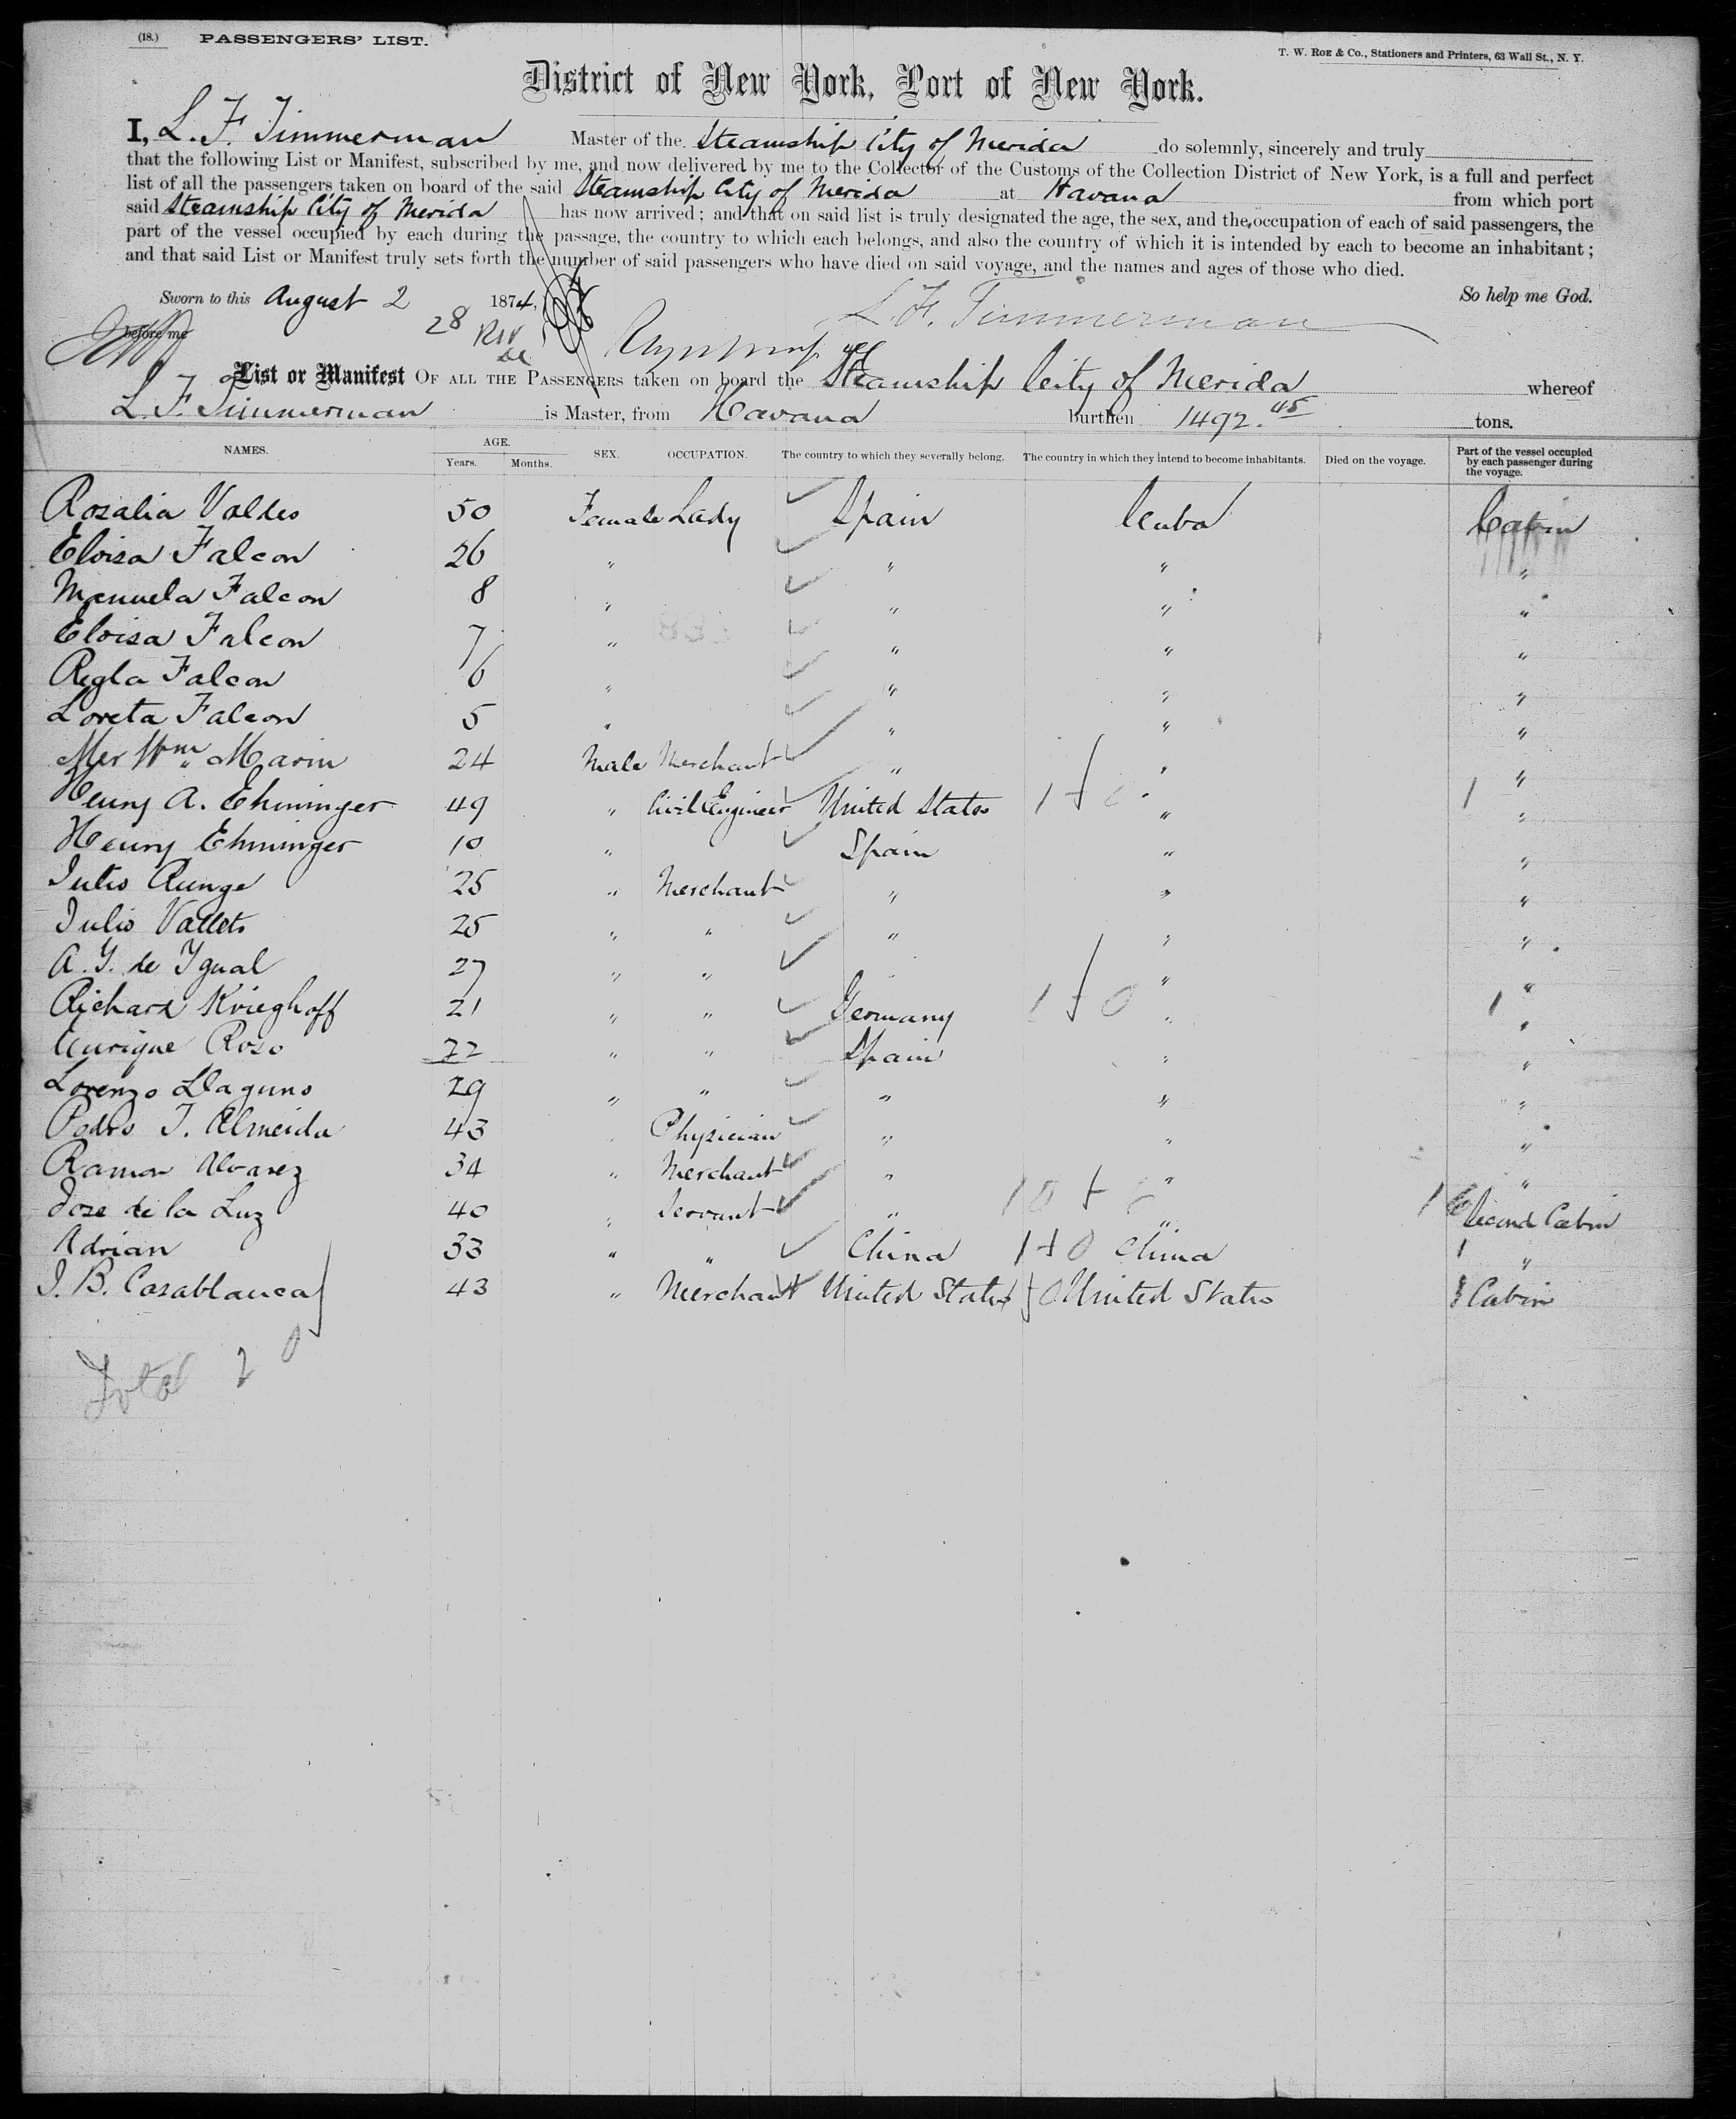 (18.) PASSENGERS' LIST.
T. W. ROE & Co., Stationers and Printers, 63 Wall St., N. Y.
District of New York, Port of New York.
I, L. F. Timmerman Master of the Steamship City of Merida do solemnly, sincerely and truly
that the following List or Manifest, subscribed by me, and now delivered by me to the Collector of the Customs of the Collection District of New York, is a full and perfect
list of all the passengers taken on board of the said Steamship City of Merida at Havana from which port
said Steamship City of Merida has now arrived; and that on said list is truly designated the age, the sex, and the occupation of each of said passengers, the
part of the vessel occupied by each during the passage, the country to which each belongs, and also the country of which it is intended by each to become an inhabitant;
and that said List or Manifest truly sets forth the number of said passengers who have died on said voyage, and the names and ages of those who died.
Sworn to this August 2 1874, So help me God.
28
before me L. F. Timmerman
List or Manifest OF ALL THE PASSENGERS taken on board the Steamship City of Merida whereof
L. F. Timmerman is Master, from Havana burthen 1492.45 tons.
NAMES. AGE. Years. Months. SEX. OCCUPATION. The country to which they severally belong. The country in which they intend to become inhabitants. Died on the voyage. Part of the vessel occupied by each passenger during the voyage.
Rosalia Valdes 50 Female Lady Spain Cuba Cabin
Eloisa Falcon 26 " " " "
Manuela Falcon 8 " " " "
Eloisa Falcon 7 " " " "
Regla Falcon 6 " " " "
Loreta Falcon 5 " " " "
Mer Wm Marin 24 Male Merchant " " "
Henry A. Ehninger 49 " Civil Engineer United States " "
Henry Ehninger 10 " Spain " "
Julio Runge 25 " Merchant " " "
Julio Vallets 25 " " " " "
A. Y. de Ygual 27 " " " " "
Richard Krieghoff 21 " " Germany " "
Enrique Roso 22 " " Spain " "
Lorenzo Llaguno 29 " " " " "
Pedro J. Almeida 43 " Physician " " "
Ramon Alvarez 34 " Merchant " " "
Jose de la Luz 40 " Servant " " Second Cabin
Adrian 33 " " China China "
J. B. Casablanca 43 " Merchant United States United States Cabin
Total 20